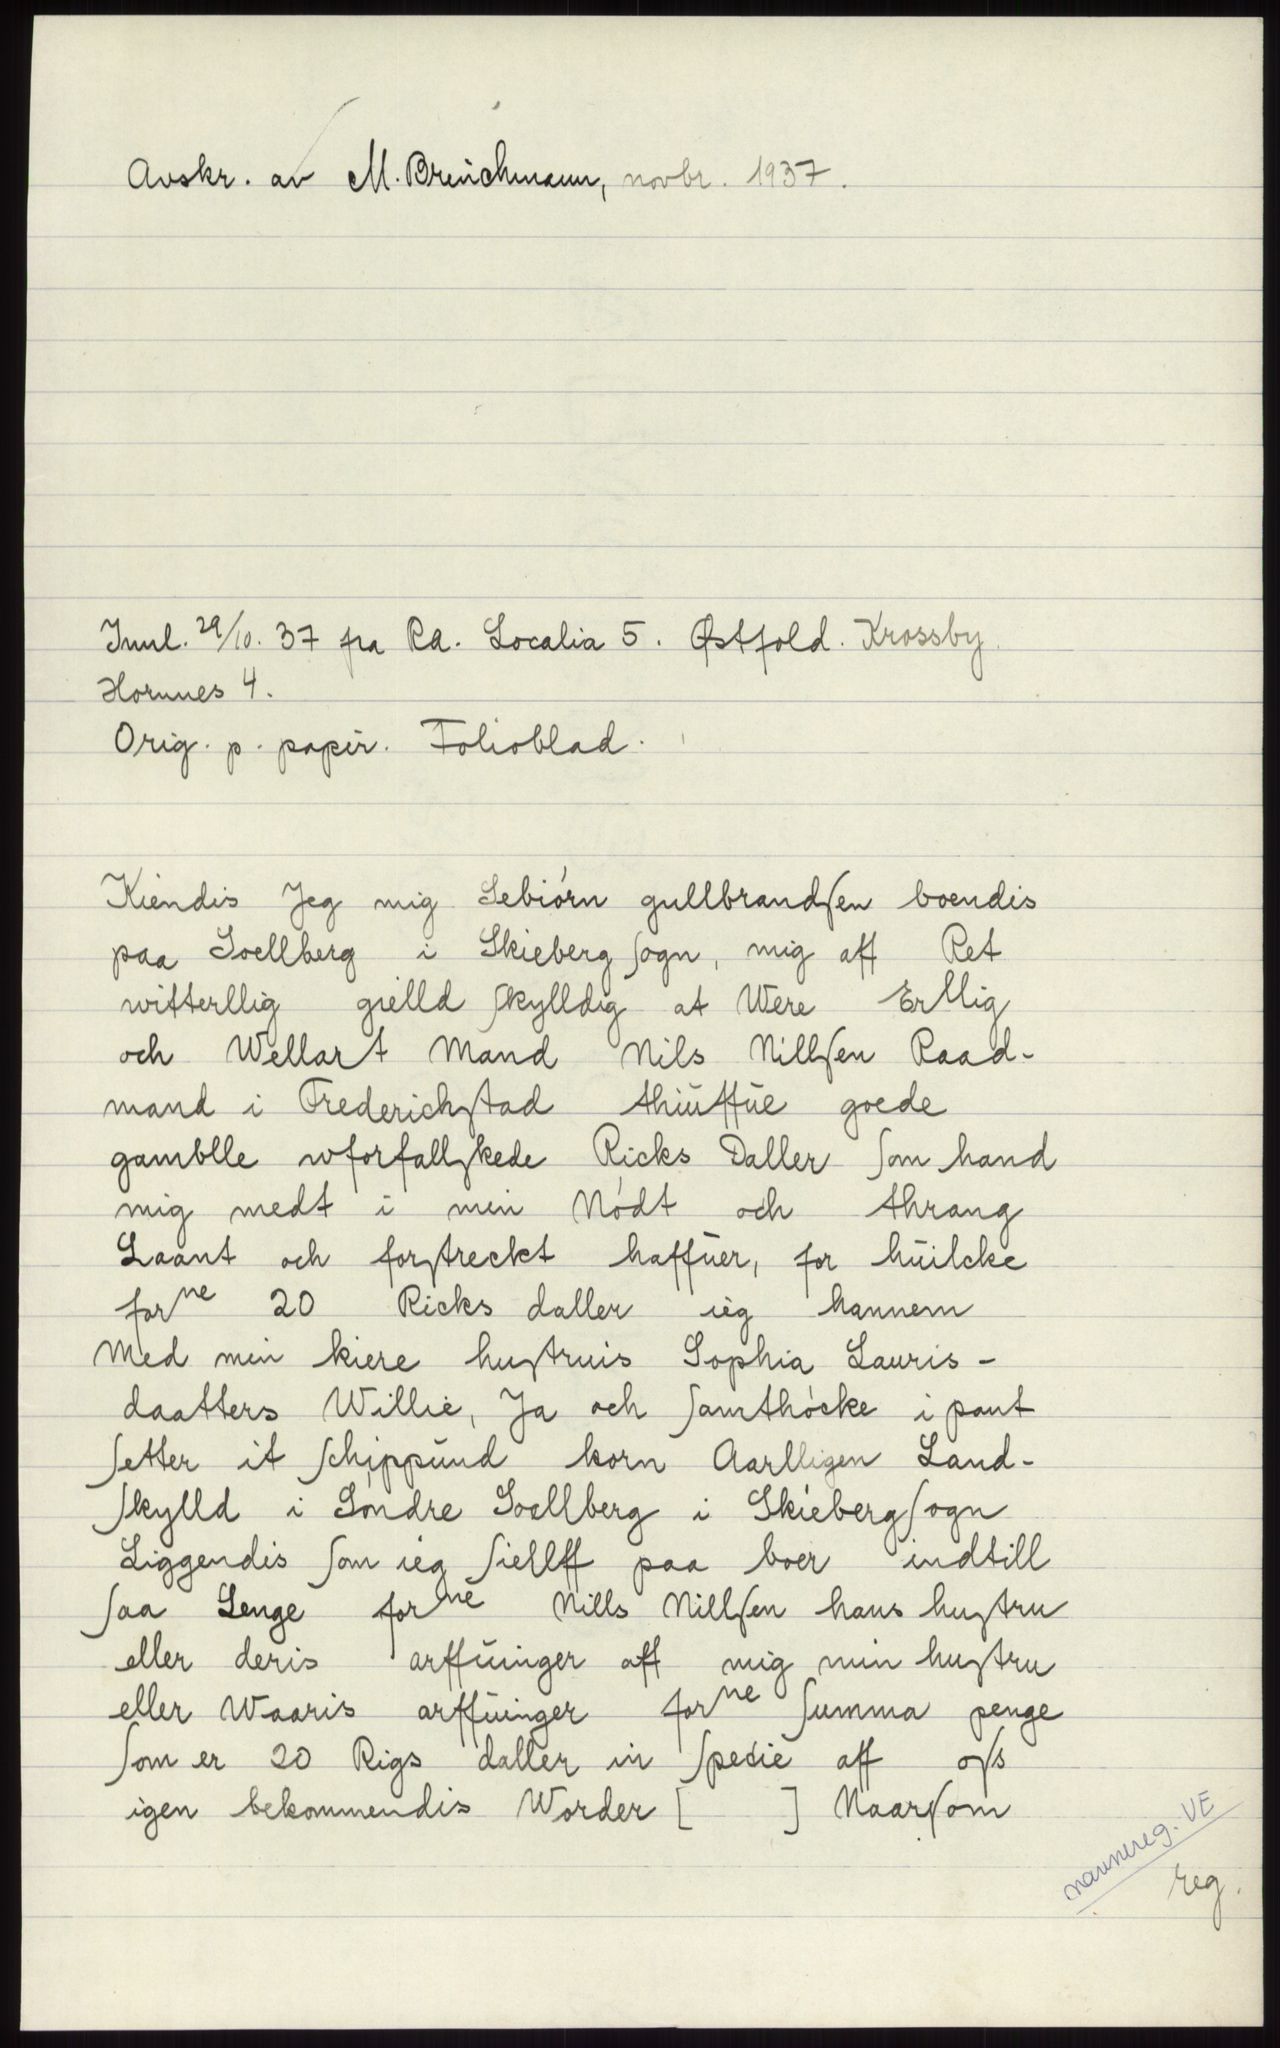 Avskr. av M. Breüchmann, novbr. 1937.
Innl. 29/10. 37 fra RA. Localia 5. Østfold. Krossby.
Hornnes 4.
Orig. p. papir. Folioblad.
Kiendis Jeg mig Sebiórn gullbrandſen boendis
paa Soellberg i Skieberg ſogn, mig aff Ret
witterllig gielld ſkylldig at Were Erllig
och Wellart Mand Nils Nillſen Raad-
mand i Frederichſtad thiüffüe goede
gamblle wforfallſkede Ricks Daller ſom hand
mig medt i min Nódt och thrang
Laant och forſtreckt haffüer, for hüilcke
forne 20 Ricks daller ieg hannem
Med min kiere huſtruis Sophia Lauris-
daatters Willie, Ja och ſamthócke i pant
ſetter it ſchippünd korn Aarlligen Land-
ſkylld i Sóndre Soellberg i Skieberg ſogn
Liggendis ſom ieg ſiellff paa boer indtill
ſaa Lenge forne Nills Nillſen hans huſtru
eller deris arffüinger aff mig min huſtru
eller Waaris arffüinger forne ſumma penge
ſom er 20 Rigs daller in ſpecie aff oſs
igen bekommendis Worder [ ] Naarſom
navnereg. VE
reg.